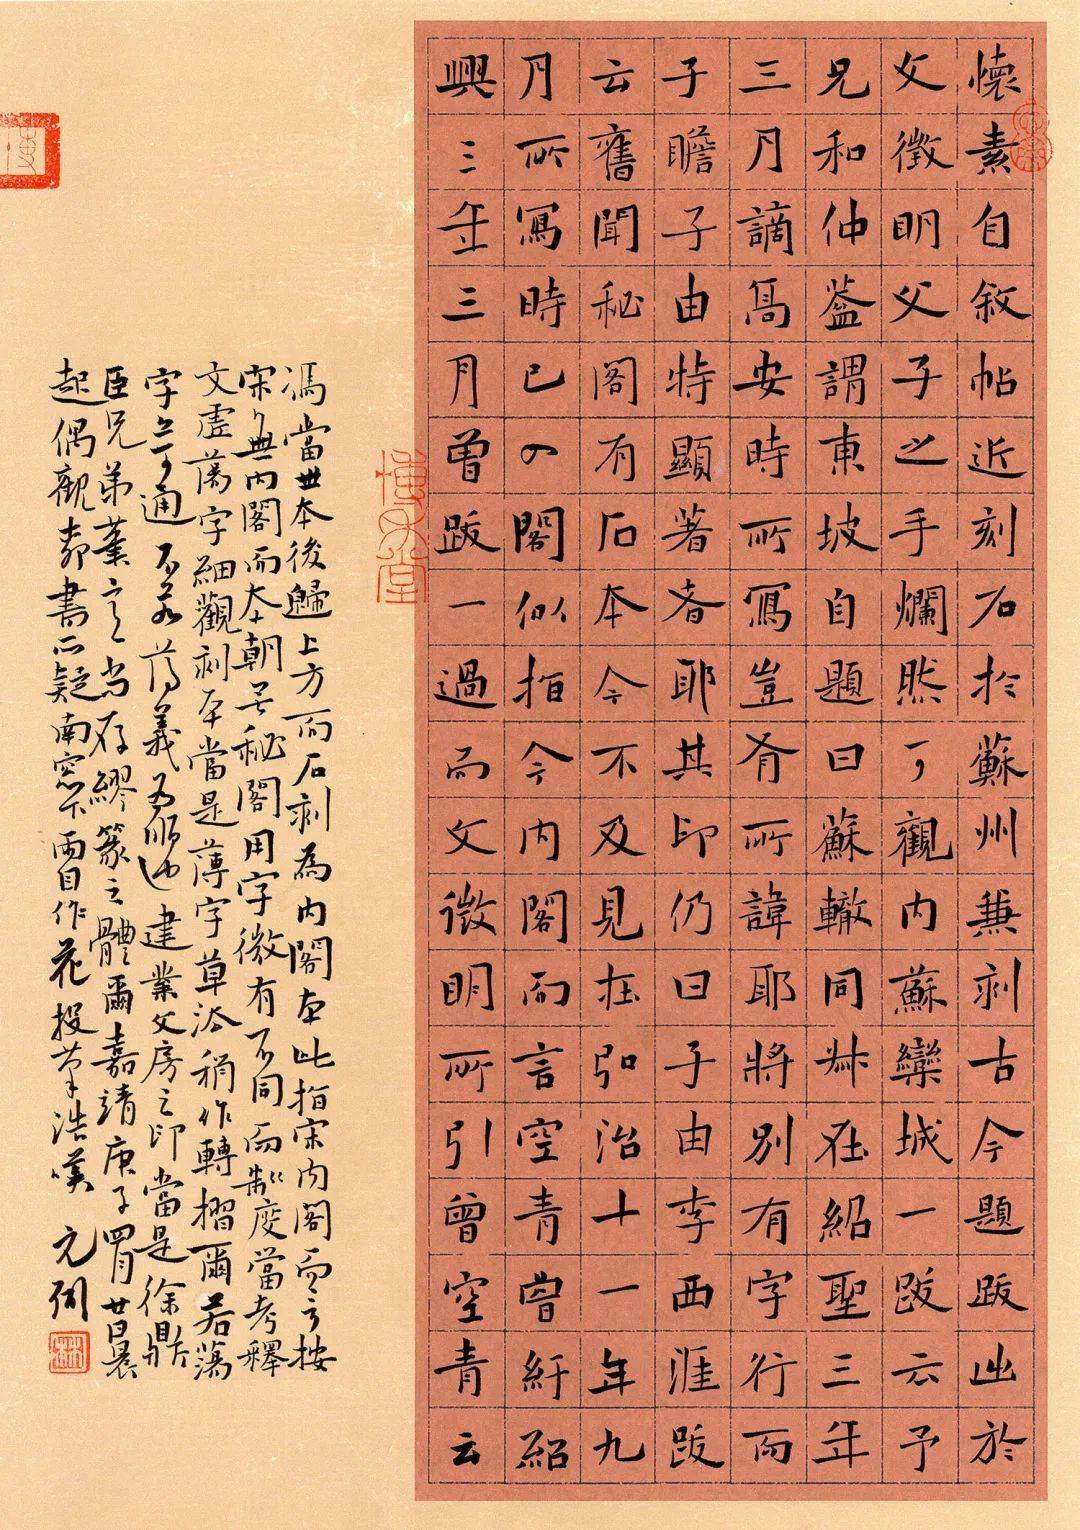 懷素自敘帖近刻石於蘇州兼刻古今題跋出於
文徵明父子之手爛然可觀內蘇欒城一跋云予
兄和仲蓋謂東坡自題曰蘇轍同叔在紹聖三年
三月謫高安時所寫豈有所諱耶將別有字行而
子瞻子由特顯著者耶其印仍曰子由李西涯跋
云舊聞秘閣有石本今不及見在弘治十一年九
月所寫時已入閣似指今內閣而言空青曾紆紹
興三年三月曾跋一過而文徵明所引曾空青云
馮當世本後歸上方而石刻為內閣本此指宋內閣而言按
宋無內閣而本朝無秘閣用字微有不同而製度當考釋
文虛蕩字細觀刻本當是薄字草法稍作轉摺爾若蕩
字亦可通不若薄義為順也建業文房之印當是徐鼎
臣兄弟輩之尚存繆篆之體爾嘉靖庚子四月廿日晨
起偶觀都書所疑南窗下兩目作花投筆浩嘆 元